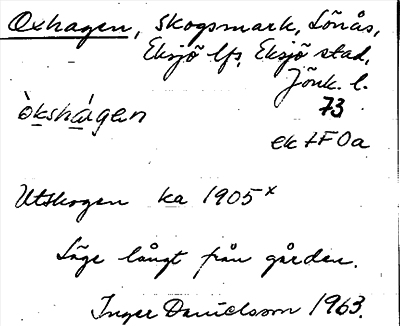 Oxhagen, skogsmark, Lönås,
Eksjö lfs, Eksjö stad,
Jönk. l.
òkshágen 73
ek FFOa
Utskogen ka 1905x
Läge långt från gården.
Inger Danielsson 1963.